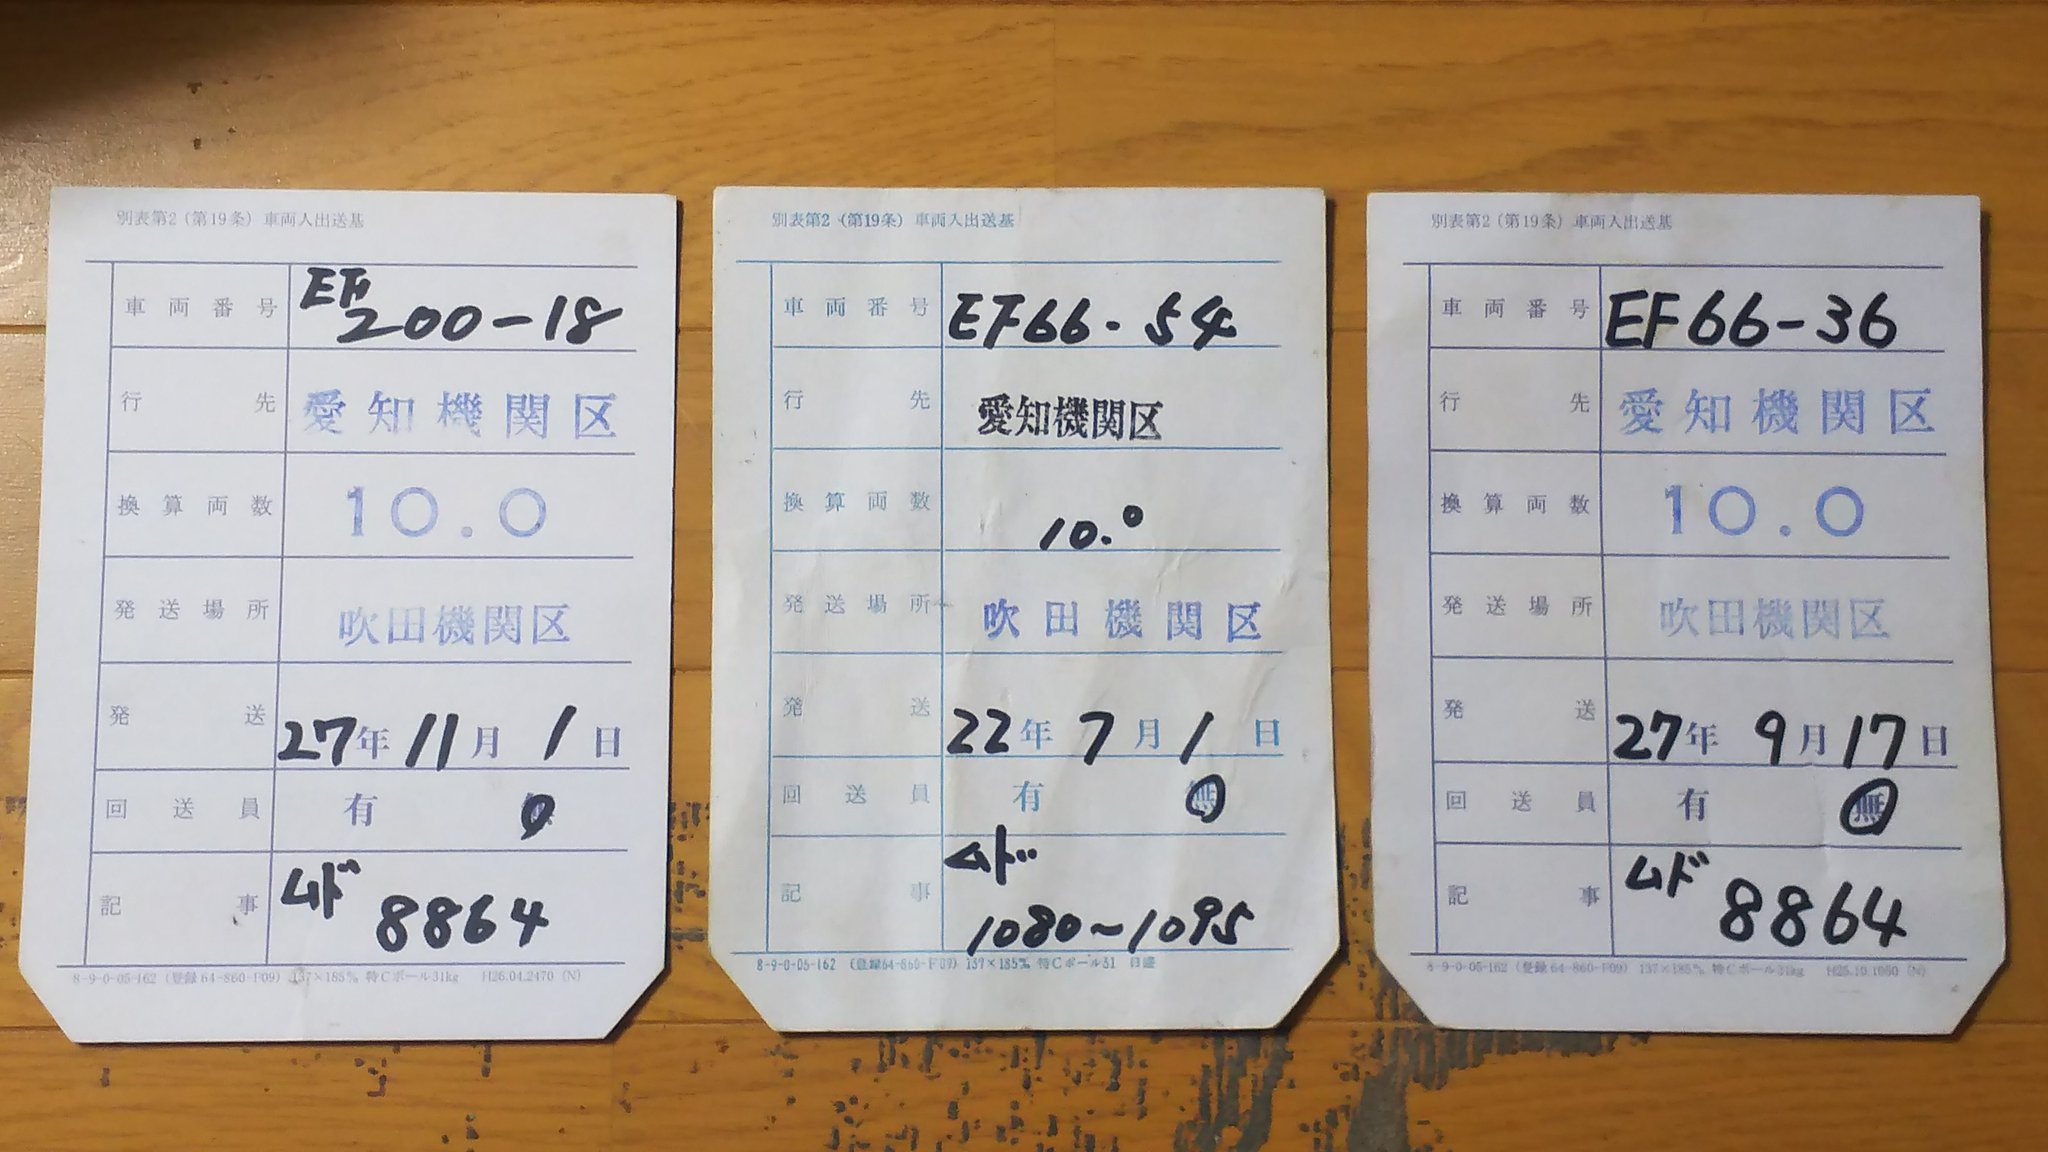 別表第2（第19条）車両入出送基
車両番号 EF200-18
行先 愛知機関区
換算両数 10.0
発送場所 吹田機関区
発送 27年11月1日
回送員 有 無
記事 ムド 8864
8-9-0-05-162（登録64-860-F09）137×185% 特Cボール31kg H26.04.2470（N）
別表第2（第19条）車両入出送基
車両番号 EF66-54
行先 愛知機関区
換算両数 10.0
発送場所 吹田機関区
発送 22年7月1日
回送員 有 無
記事 ムド
1080～1095
8-9-0-05-162（登録64-860-F09）137×185% 特Cボール31
別表第2（第19条）車両入出送基
車両番号 EF66-36
行先 愛知機関区
換算両数 10.0
発送場所 吹田機関区
発送 27年9月17日
回送員 有 無
記事 ムド 8864
8-9-0-05-162（登録64-860-F09）137×185% 特Cボール31kg H25.10.1050（N）